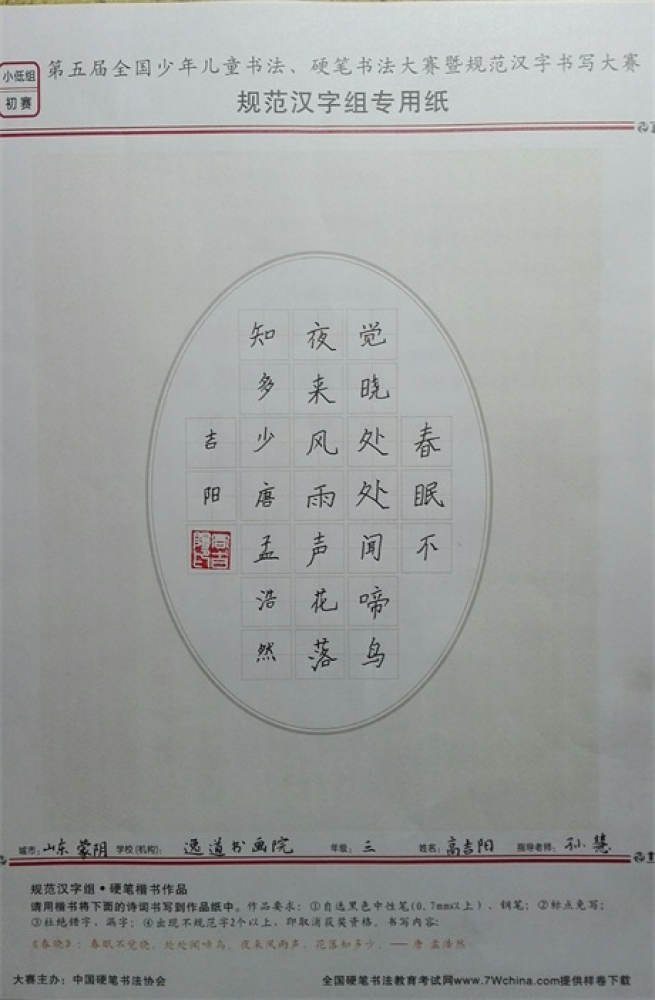 小低组
初赛
第五届全国少年儿童书法、硬笔书法大赛暨规范汉字书写大赛
规范汉字组专用纸
春眠不
觉晓处处闻啼鸟
夜来风雨声花落
知多少唐孟浩然
吉阳
城市：山东蒙阴 学校(机构)：逸道书画院 年级：三 姓名：高吉阳 指导老师：孙慧
规范汉字组·硬笔楷书作品
请用楷书将下面的诗词书写到作品纸中。作品要求：①自选黑色中性笔(0.7mm以上)、钢笔；②标点免写；
③杜绝错字、漏字；④出现不规范字2个以上，即取消获奖资格。书写内容：
《春晓》：春眠不觉晓，处处闻啼鸟，夜来风雨声，花落知多少。——唐 孟浩然
大赛主办：中国硬笔书法协会 全国硬笔书法教育考试网www.7Wchina.com提供样卷下载